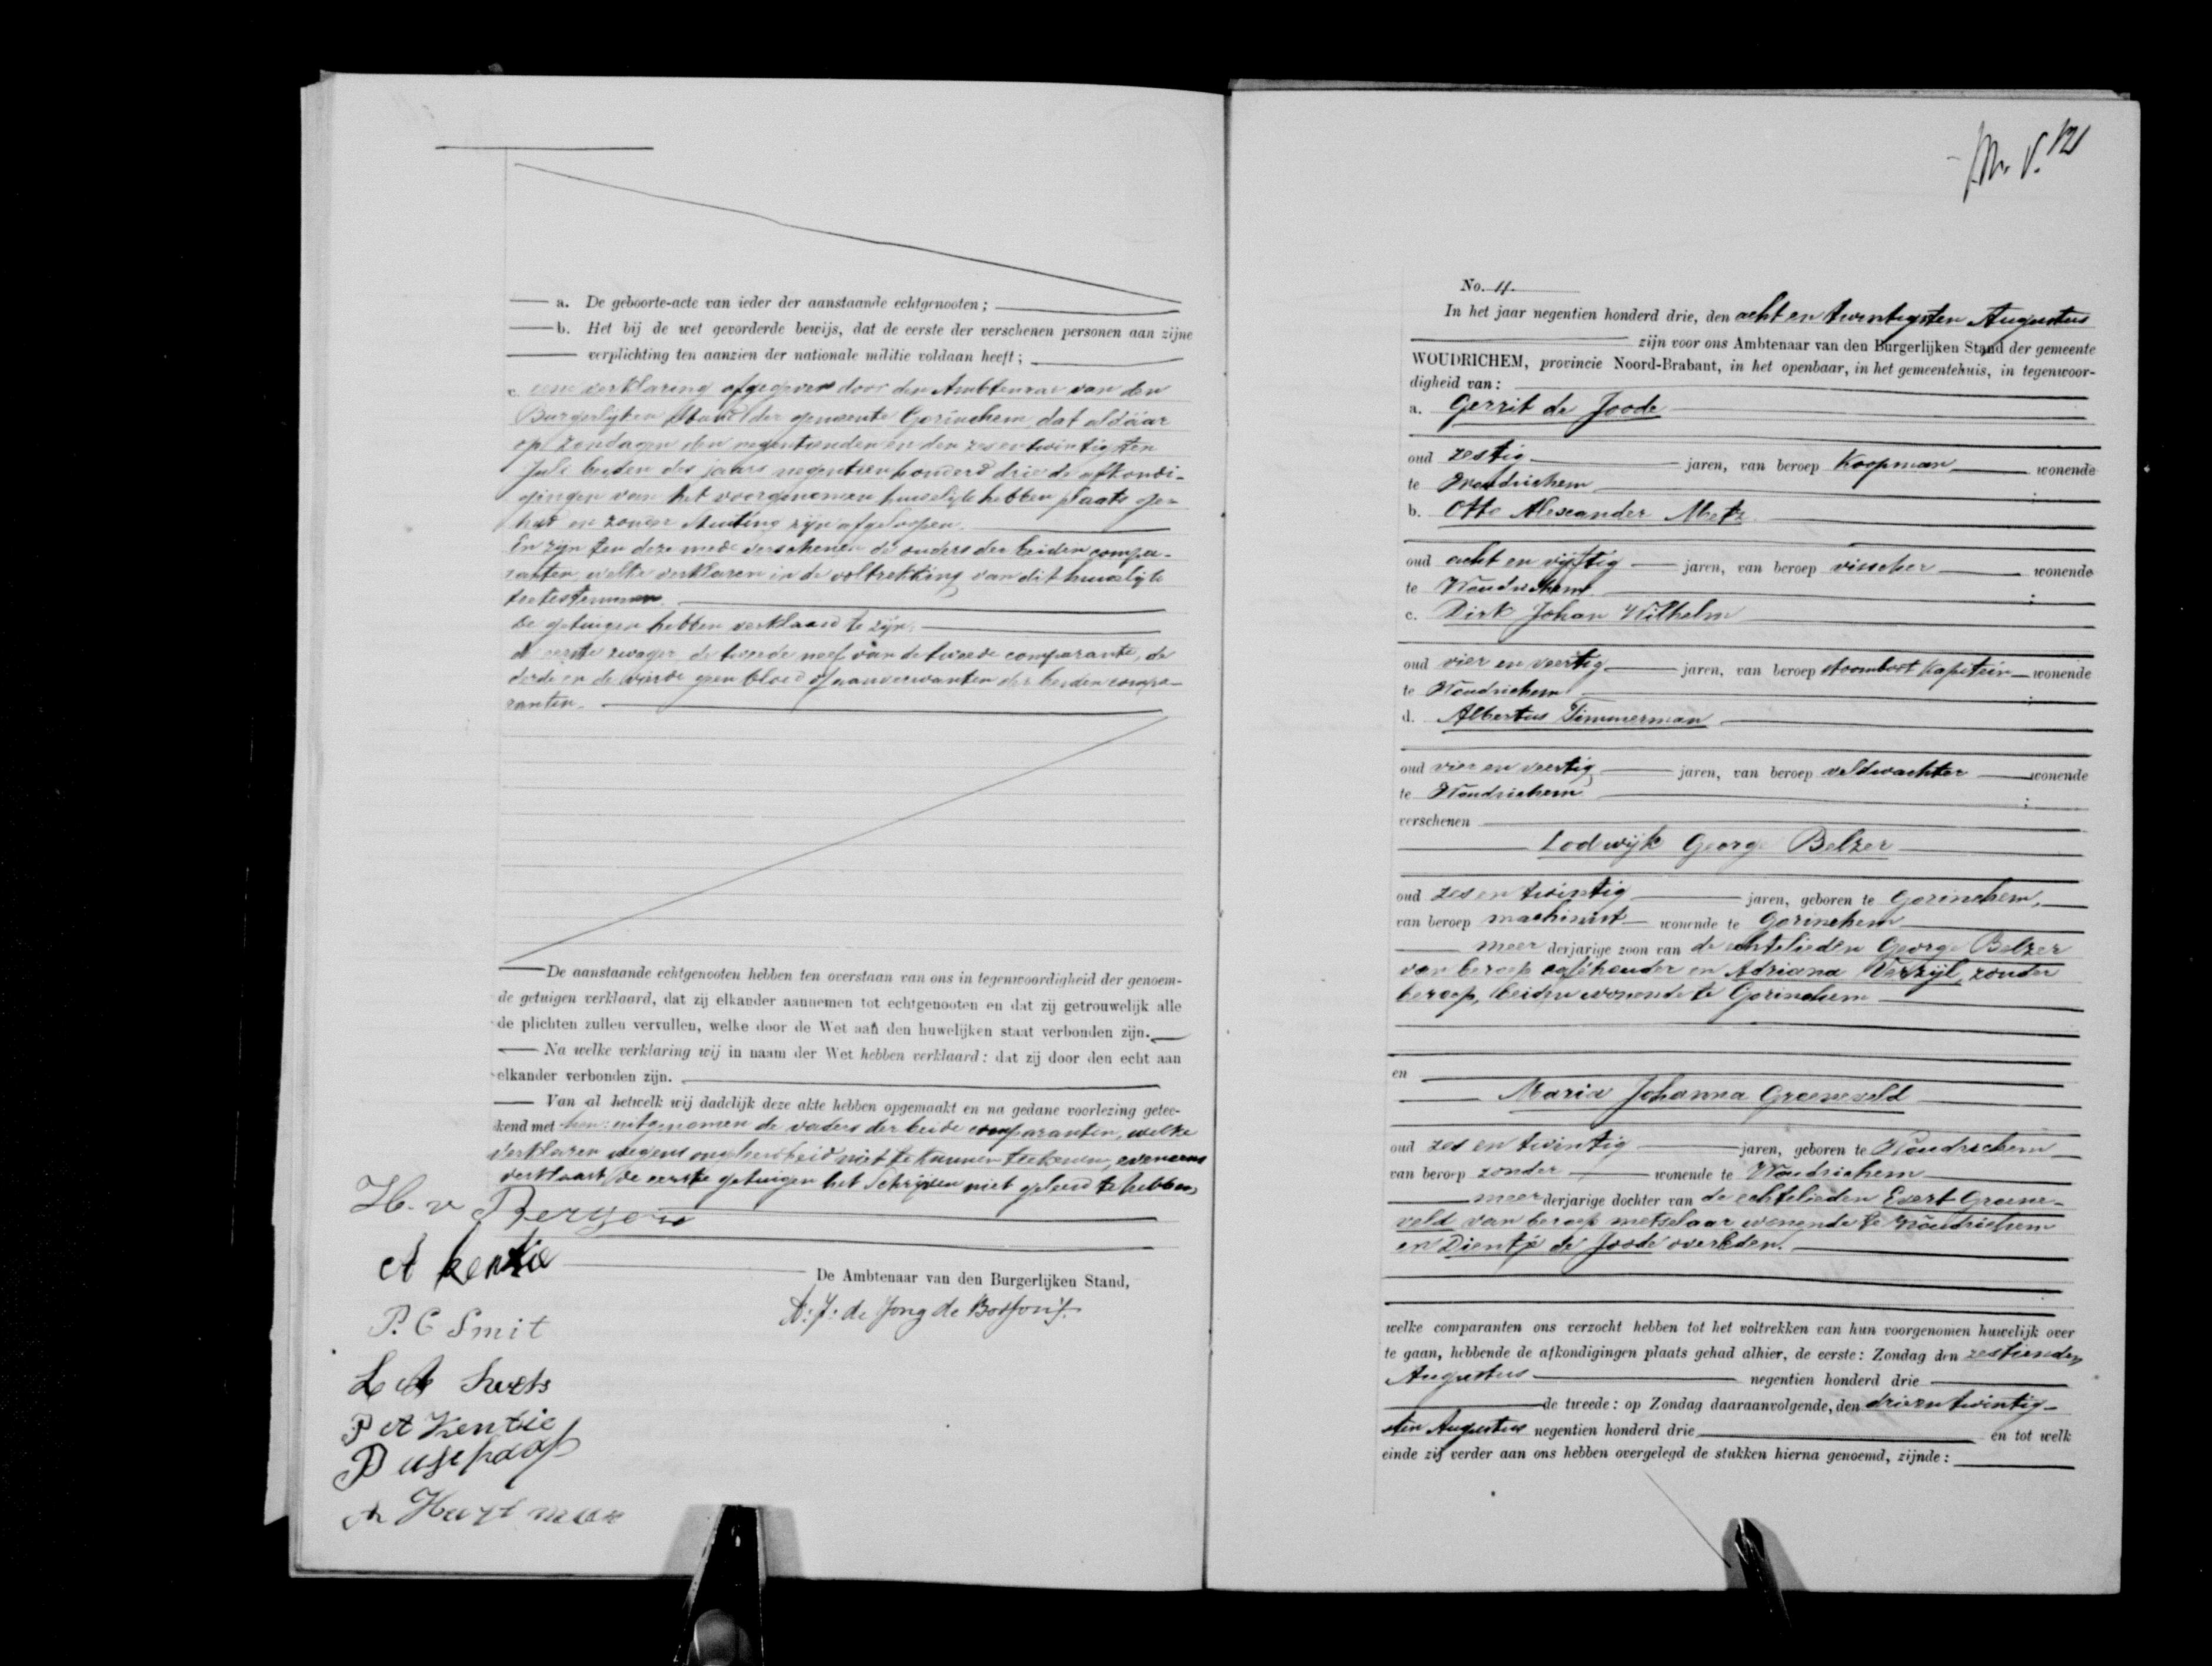 a. De geboorte-acte van ieder der aanstaande echtgenooten;
b. Het bij de wet gevorderde bewijs, dat de eerste der verschenen personen aan zijne
verplichting ten aanzien der nationale militie voldaan heeft;
c. eene verklaring afgegeven door den Ambtenaar van den
Burgerlijken Stand der gemeente Gorinchem, dat aldaar
op Zondagen den negentienden en den zesentwintigsten
Juli beiden des jaars negentienhonderd drie de afkondi-
gingen van het voorgenomen huwelijk hebben plaats ge-
had en zonder stuiting zijn afgeloopen.
En zijn ten deze mede verschenen de ouders der beiden compa-
ranten, welke verklaren in de voltrekking van dit huwelijk
toetestemmen.
De getuigen hebben verklaard te zijn:
de eerste zwager, de tweede neef van de tweede comparante, de
derde en de vierde geen bloed of aanverwanten der beiden compa-
ranten.
De aanstaande echtgenooten hebben ten overstaan van ons in tegenwoordigheid der genoem-
de getuigen verklaard, dat zij elkander aannemen tot echtgenooten en dat zij getrouwelijk alle
de plichten zullen vervullen, welke door de Wet aan den huwelijken staat verbonden zijn.
Na welke verklaring wij in naam der Wet hebben verklaard: dat zij door den echt aan
elkander verbonden zijn.
Van al hetwelk wij dadelijk deze akte hebben opgemaakt en na gedane voorlezing getee-
kend met hen: uitgenomen de vaders der beide comparanten, welke
verklaren wegens ongeleerdheid niet te kunnen teekenen, eveneens
verklaart de eerste getuigen het Schrijven niet geleerd te hebben,
H. v Bergen
A Kentie
De Ambtenaar van den Burgerlijken Stand,
P. C Smit
L A
P A Kentie
A Hartman
No. 11.
In het jaar negentien honderd drie, den acht en twintigsten Augustus
zijn voor ons Ambtenaar van den Burgerlijken Stand der gemeente
WOUDRICHEM, provincie Noord-Brabant, in het openbaar, in het gemeentehuis, in tegenwoor-
digheid van:
a. Gerrit de Joode
oud zestig jaren, van beroep Koopman wonende
te Woudrichem ;
b. Otto Alexander Metz
oud acht en vijftig jaren, van beroep visscher wonende
te Woudrichem ;
c. Dirk Johan Wilhelm
oud vier en veertig jaren, van beroep stoomboot Kapitein wonende
te Woudrichem ;
d. Albertus Timmerman
oud vier en veertig jaren, van beroep veldwachter wonende
te Woudrichem ;
verschenen
Lodewijk George Belzer
oud zes en twintig jaren, geboren te Gorinchem,
van beroep machinist wonende te Gorinchem
meer derjarige zoon van de echtelieden George Belzer
van beroep caféhouder en Adriana Verzijl, zonder
beroep, beiden wonende te Gorinchem
en
Maria Johanna Groeneveld
oud zes en twintig jaren, geboren te Woudrichem
van beroep zonder wonende te Woudrichem
meer derjarige dochter van de echtelieden Evert Groene-
veld van beroep metselaar wonende te Woudrichem
en Dientje de Joode overleden.
welke comparanten ons verzocht hebben tot het voltrekken van hun voorgenomen huwelijk over
te gaan, hebbende de afkondigingen plaats gehad alhier, de eerste: Zondag den zestienden
Augustus negentien honderd drie
de tweede: op Zondag daaraanvolgende, den drieentwintig-
sten Augustus negentien honderd drie en tot welk
einde zij verder aan ons hebben overgelegd de stukken hierna genoemd, zijnde: